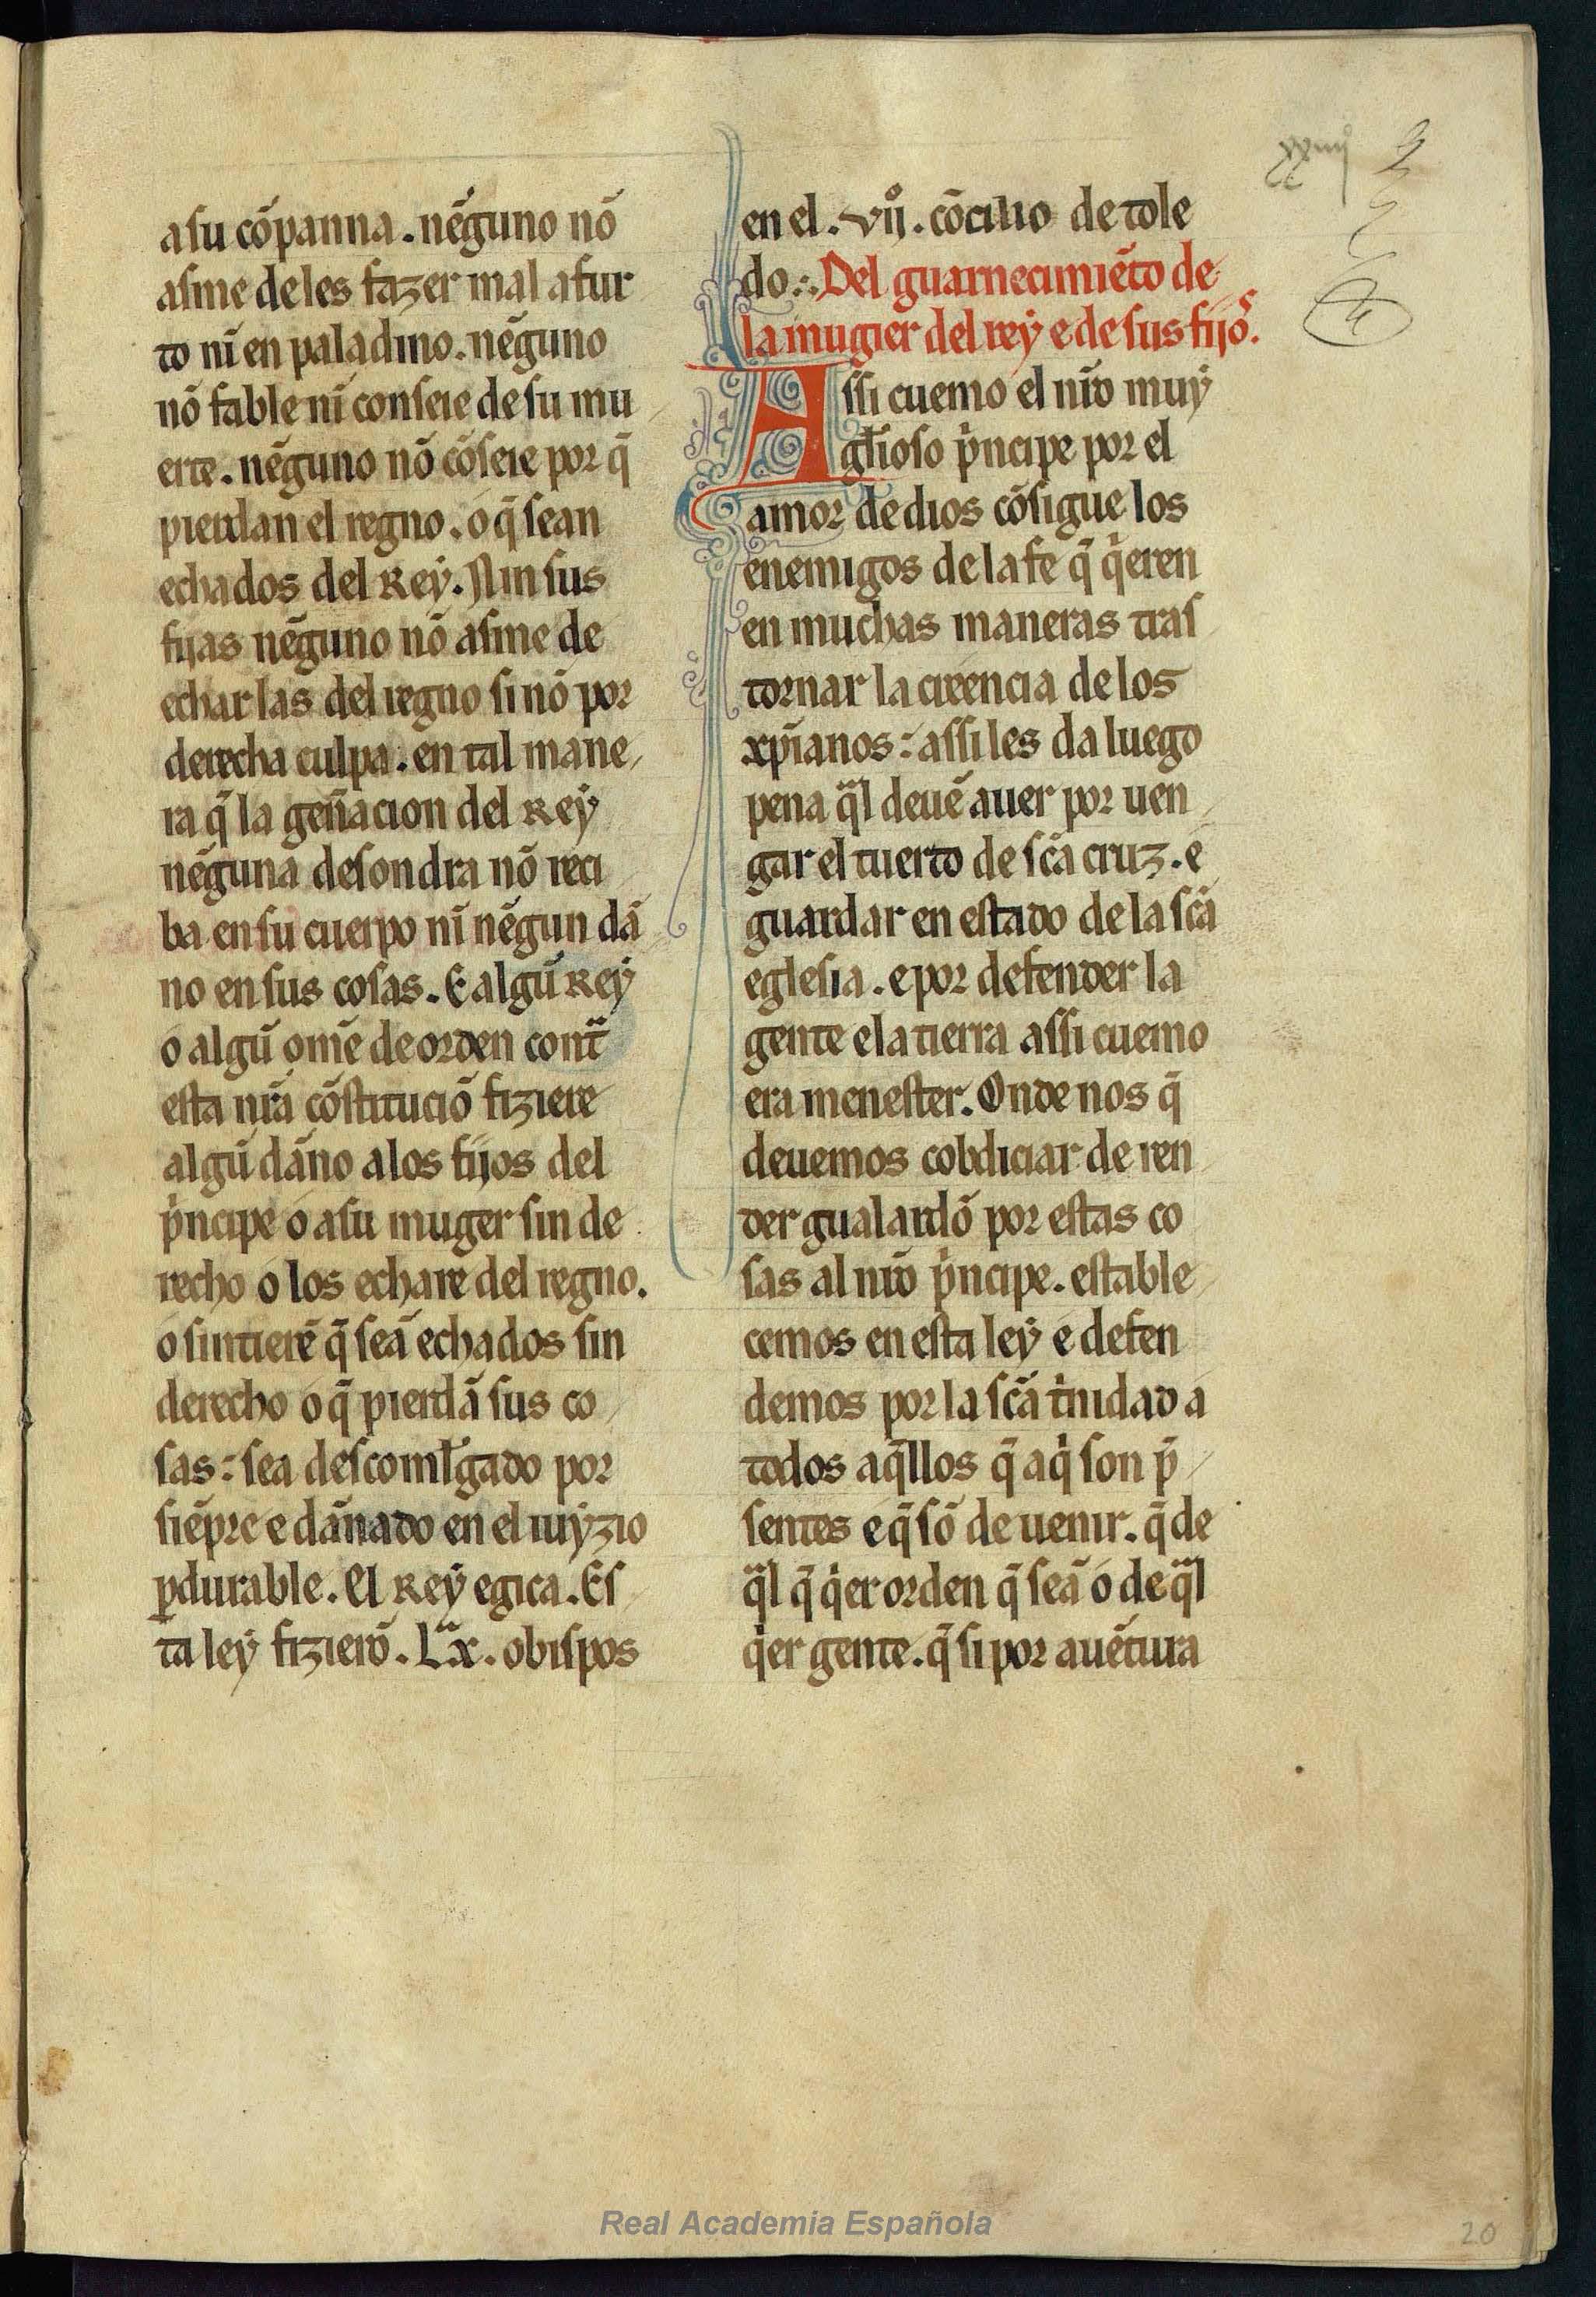 a su cõpanna. nẽguno nõ
asme de les fazer mal a fur
to nĩ en paladino. nẽguno
nõ fable nĩ conseie de su mu
erte. nẽguno nõ cõseie por q̃
pierdan el regno. o q̃ sean
echados del Rey. Nin sus
fijas nẽguno nõ asme de
echar las del regno si nõ por
derecha culpa. en tal mane
ra q̃ la gen̄acion del Rey
nẽguna desondra nõ reci
ba en su cuerpo nĩ nẽgun dã
no en sus cosas. E algũ Rey
o algũ omẽ de orden contᷓ
esta nr̃a cõstituciõ fiziere
algũ dãno a los fijos del
pͥncipe o a su muger sin de
recho o los echare del regno.
o sintierẽ q̃ seã echados sin
derecho o q̃ pierdã sus co
sas: sea descoml̃gado por
siẽpre e dãnado en el iuyzio
ꝑdurable. El Rey egica. Es
ta ley fizierõ. Lᷓx. obispos
en el. vijº. cõcilio de tole
do:. Del guarnecimiẽto de
la mugier del rey e de sus fijos.
Assi cuemo el nr̃o muy
gl̃ioso pͥncipe por el
amor de dios cõsigue los
enemigos de la fe q̃ qͥeren
en muchas maneras tras
tornar la creencia de los
xp̃ianos: assi les da luego
pena qᷓl deuẽ auer por uen
gar el tuerto de sc̃a cruz. e
guardar en estado de la sc̃a
eglesia. e por defender la
gente e la tierra assi cuemo
era menester. Onde nos q̃
deuemos cobdiciar de ren
der gualardõ por estas co
sas al nr̃o pͥncipe. estable
cemos en esta ley e defen
demos por la sc̃a tͥnidad a
todos aq̃llos q̃ aqͥ son p̃
sentes e q̃ sõ de uenir. q̃ de
qᷓl q̃ qͥer orden q̃ seã o de qᷓl
qͥer gente. q̃ si por auẽtura
xxiiijº
Real Academia Española
20